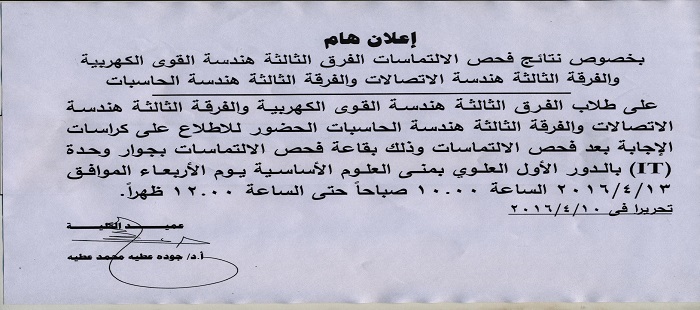 إعلان هام
بخصوص نتائج فحص الالتماسات الفرق الثالثة هندسة القوى الكهربية
والفرقة الثالثة هندسة الاتصالات والفرقة الثالثة هندسة الحاسبات
على طلاب الفرق الثالثة هندسة القوى الكهربية والفرقة الثالثة هندسة
الاتصالات والفرقة الثالثة هندسة الحاسبات الحضور للاطلاع على كراسات
الإجابة بعد فحص الالتماسات وذلك بقاعة فحص الالتماسات بجوار وحدة
(IT) بالدور الأول العلوي بمنى العلوم الأساسية يوم الأربعاء الموافق
٢٠١٦/٤/١٣ الساعة ١٠.٠٠ صباحاً حتى الساعة ١٢.٠٠ ظهراً.
تحريرا فى ٢٠١٦/٤/١٠
عميد الكلية
أ.د/ جوده عطيه محمد عطيه